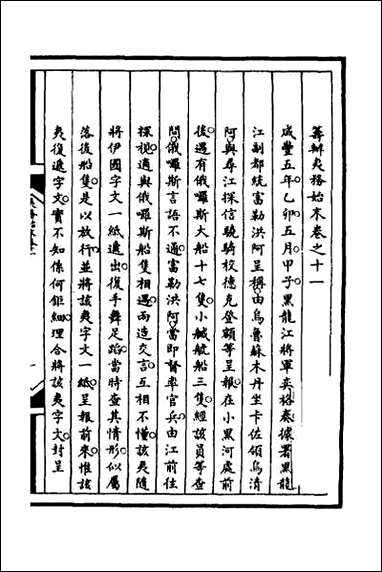 籌辦夷務始末卷之十一
咸豐五年乙卯五月甲子黑龍江將軍奕格奏據署黑龍
江副都統富勒洪阿呈稱由烏魯蘇木丹坐卡佐領烏清
阿與尋江探信驍騎校德克登額等呈報在小黑河處前
後遇有俄囉斯大船十七隻小觱舤船三隻經該員等查
問俄囉斯言語不通富勒洪阿當即督率官兵由江前往
探視適與俄囉斯船隻相遇兩造交言互相不懂該夷隨
將伊國字文一紙遺出復手舞足蹈當時查其情形似屬
落後船隻是以放行並將該夷字文一紙呈報前來惟該
夷復遞字文實不知係何鉅細理合將該夷字文封呈